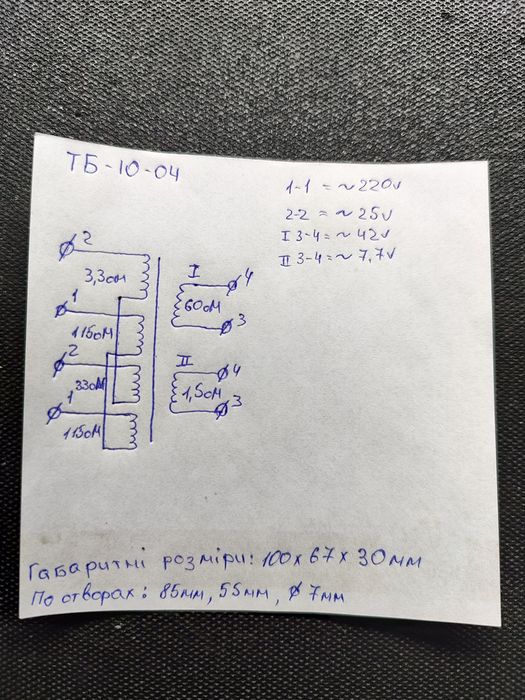 ТБ-10-04
1-1 = ~220v
2-2 = ~25v
I 3-4 = ~42v
II 3-4 = ~7,7v
2
3,3ом
1
115ом
2
33ом
1
115ом
I
4
60ом
3
II
4
1,5ом
3
Габаритні розміри: 100х67х30мм
По отворах: 85мм, 55мм, ϕ7мм